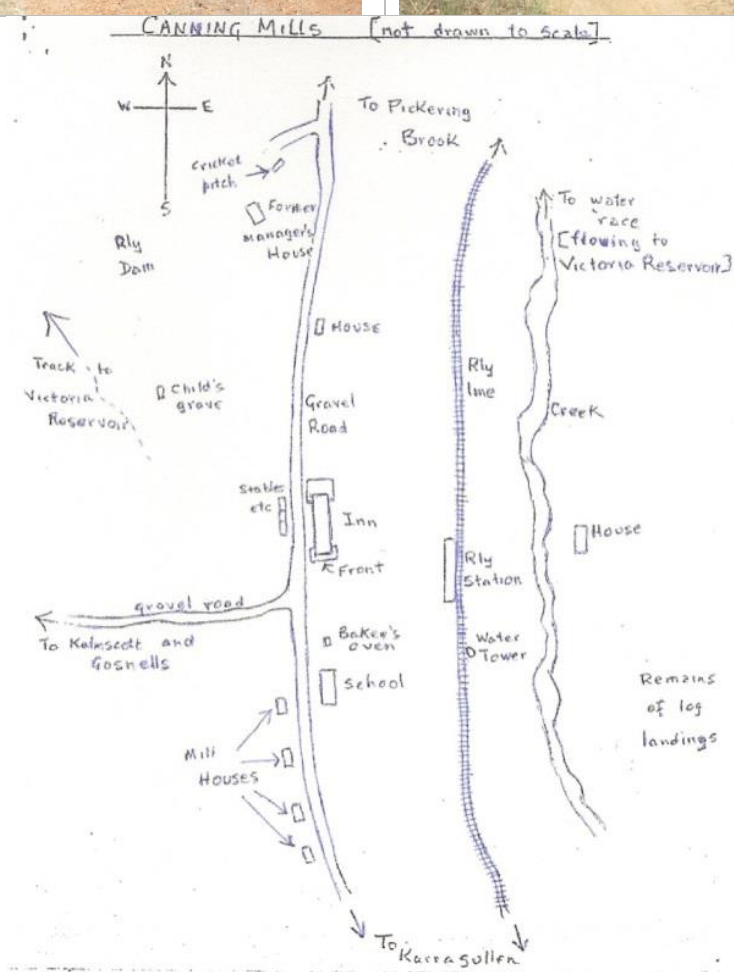 CANNING MILLS [not drawn to scale]
N
W
E
S
To Pickering
Brook
Cricket
pitch
Former
Manager's
House
Rly
Dam
To water
race
[flowing to
Victoria Reservoir]
House
Track to
Victoria
Reservoir
Child's
grave
Gravel
Road
Rly
line
Creek
Stables
etc
Inn
Front
House
Rly
Station
gravel road
To Kelmscott and
Gosnells
Baker's
oven
Water
Tower
School
Remains
of log
landings
Mill
Houses
To
Karragullen